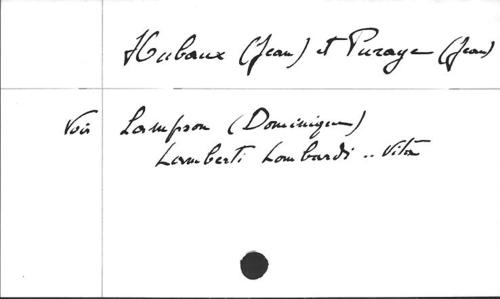 Hubaux (Jean) et Puraye (Jean)
Voir Lampson (Dominique)
Lamberti Lombardi .. Vita